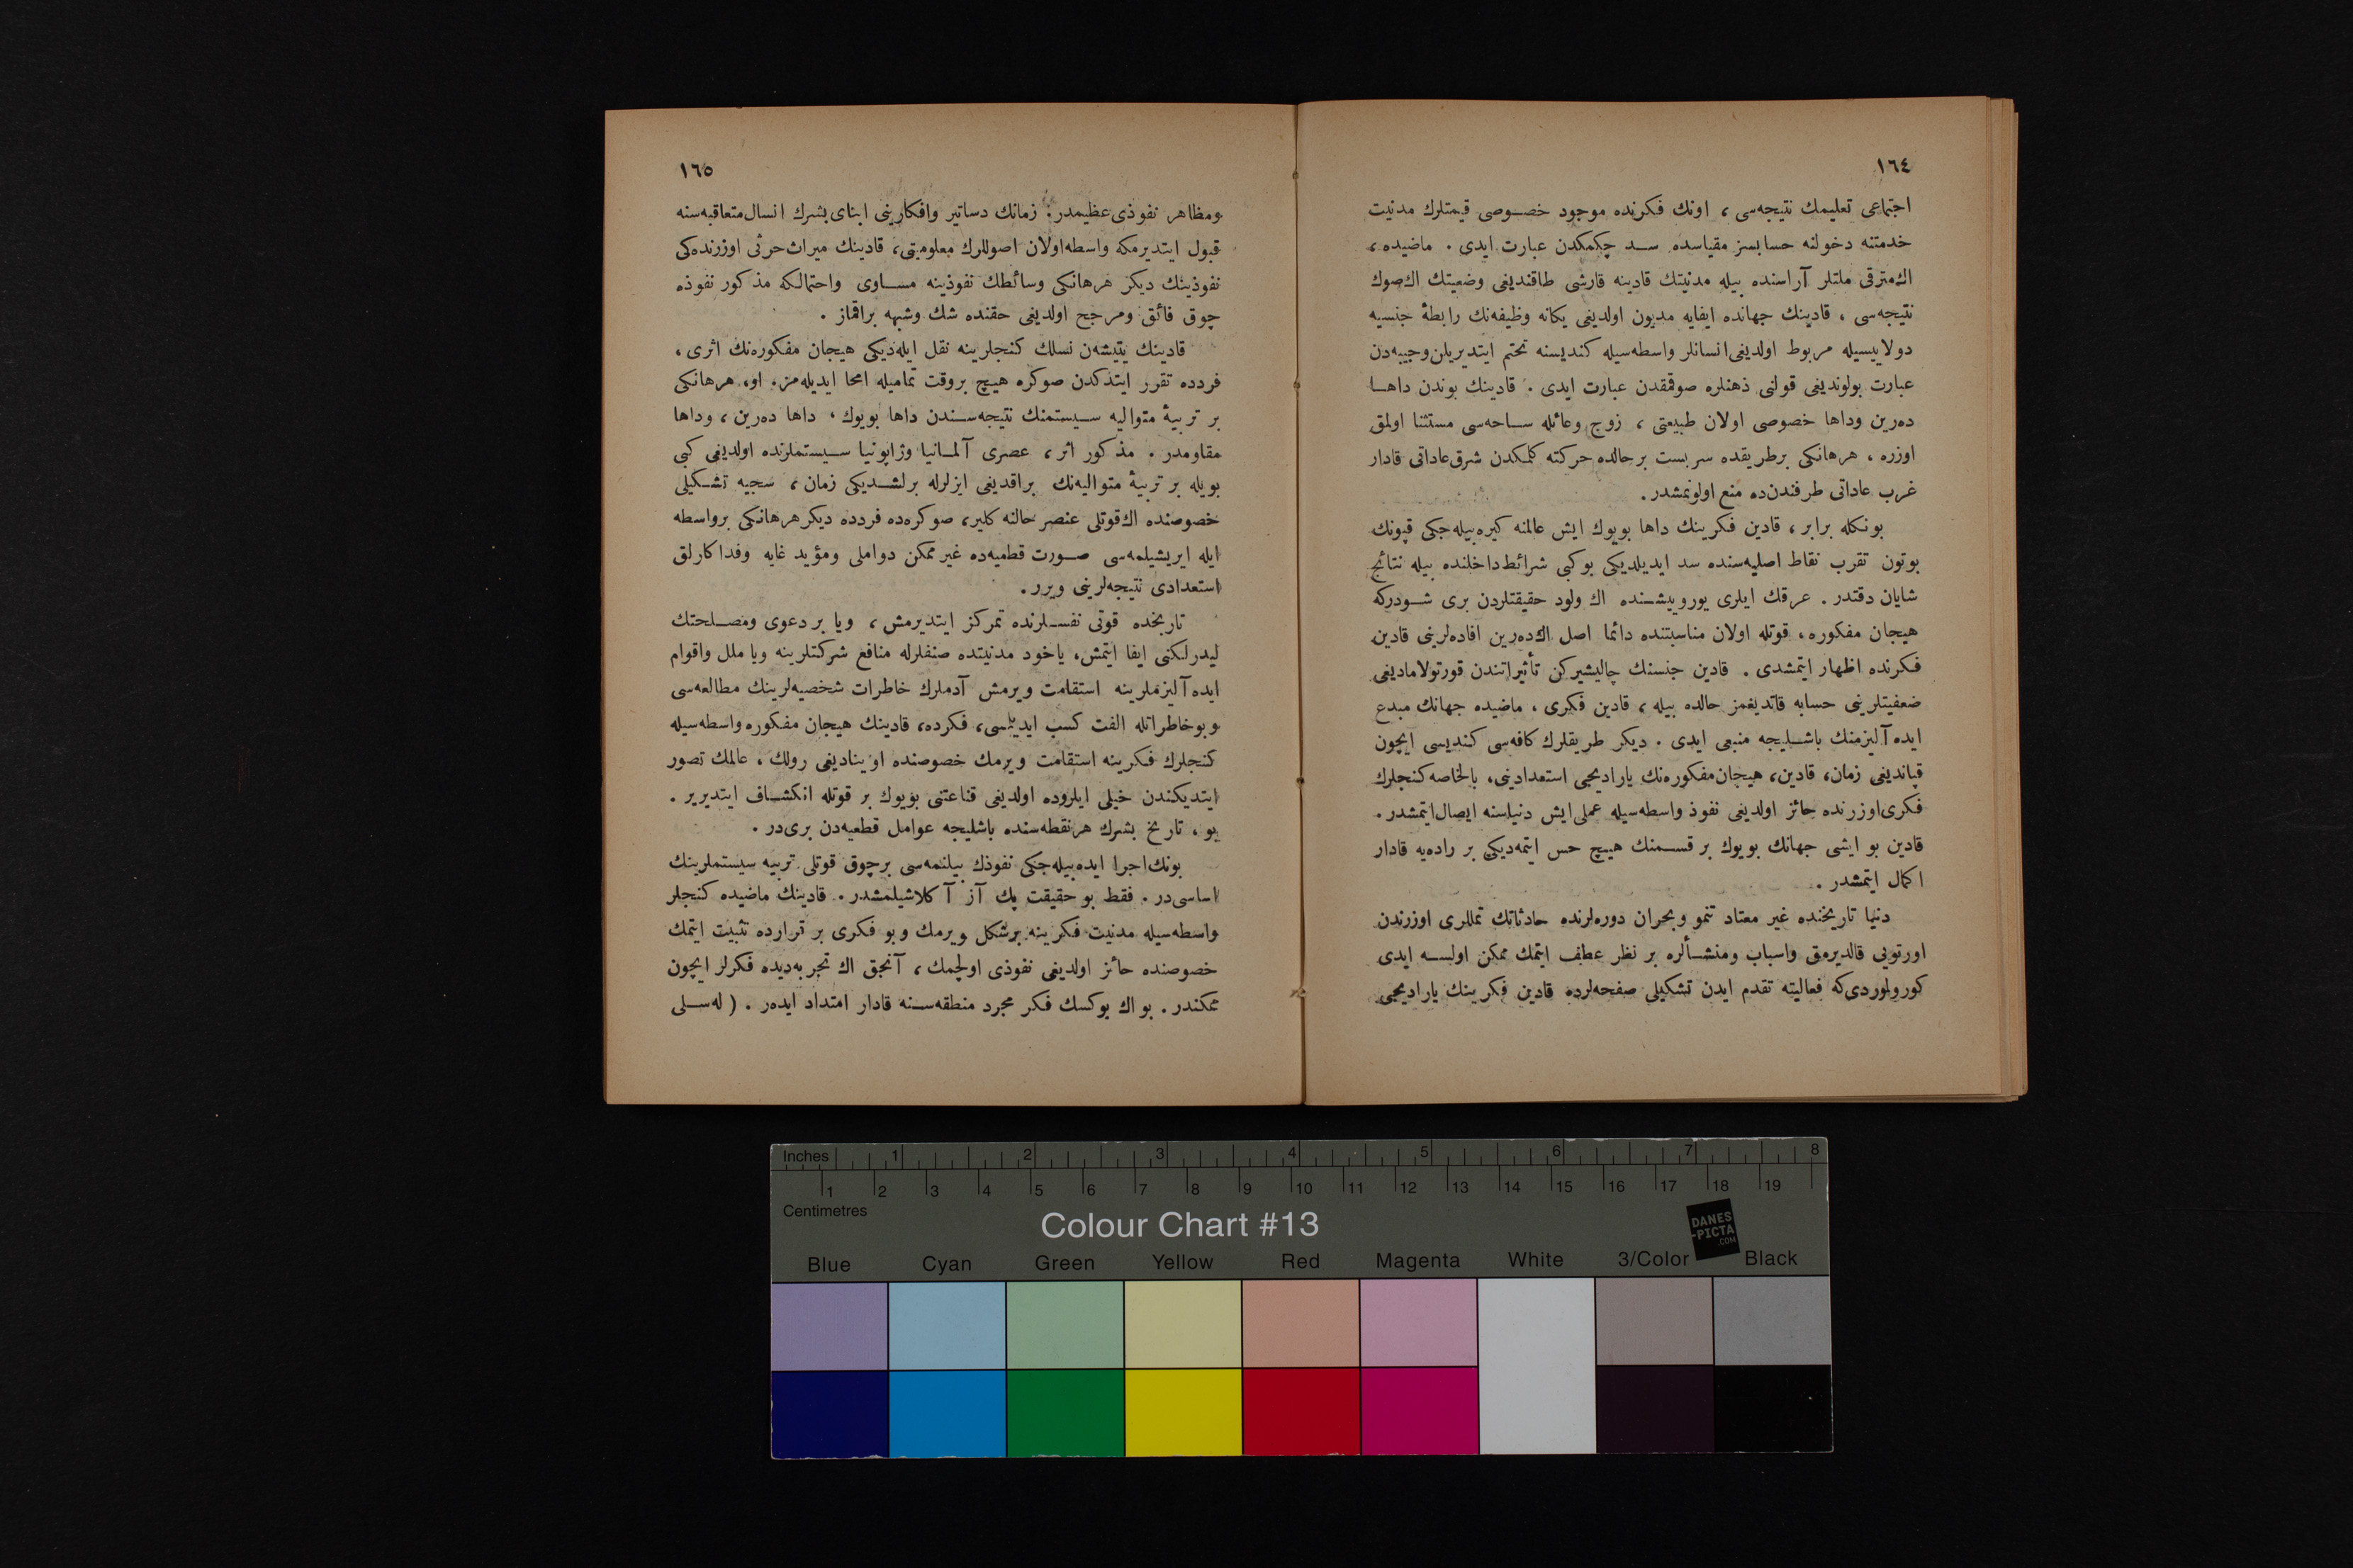 ١٦٤
اجتماعی تعلیمك نتیجه‌سی ، اونك فكرنده موجود خصوصی قیمتلرك مدنیت
خدمتنه دخولنه حسابسز مقیاسده سد چكمكدن عبارت ایدی . ماضیده ،
اك مترقی ملتلر آراسنده بیله مدنیتك قادینه قارشی طاقندیغی وضعیتك اك صوك
نتیجه‌سی ، قادینك جهانده ایفایه مدیون اولدیغی یكانه وظیفه‌نك رابطهٔ جنسیه
دولاییسیله مربوط اولدیغی انسانلر واسطه‌سیله كندیسنه تحتم ایتدیریلن وجیبه‌دن
عبارت بولوندیغی قولنی ذهنلره صوقمقدن عبارت ایدی . قادینك بوندن داها
ده‌رین وداها خصوصی اولان طبیعتی ، زوج وعائله ساحه‌سی مستثنا اولمق
اوزره ، هرهانكی برطریقده سربست برحالده حركته كلمكدن شرق عاداتی قادار
غرب عاداتی طرفندن‌ده منع اولونمشدر .
بونكله برابر ، قادین فكرینك داها بویوك ایش عالمنه كیره‌بیله‌جكی قپونك
بوتون تقرب نقاط اصلیه‌سنده سد ایدیلدیكی بوكبی شرائط داخلنده بیله نتائج
شایان دقتدر . عرقك ایلری یورویشنده اك ولود حقیقتلردن بری شودركه
هیجان مفكوره ، قوتله اولان مناسبتنده دائما اصل اك‌ده‌رین افاده‌لرینی قادین
فكرنده اظهار ایتمشدی . قادین جنسنك چالیشیركن تأثیراتندن قورتولامادیغی
ضعفیتلرینی حسابه قاتدیغمز حالده بیله ، قادین فكری ، ماضیده جهانك مبدع
ایده‌آلیزمنك باشلیجه منبعی ایدی . دیكر طریقلرك كافه‌سی كندیسی ایچون
قپاندیغی زمان، قادین، هیجان مفكوره‌نك یارادیجی استعدادینی، بالخاصه كنجلرك
فكری اوزرنده حائز اولدیغی نفوذ واسطه‌سیله عملی ایش دنیاسنه ایصال ایتمشدر .
قادین بو ایشی جهانك بویوك بر قسمنك هیچ حس ایتمه‌دیكی بر راده‌یه قادار
اكمال ایتمشدر .
دنیا تاریخنده غیر معتاد تنمو وبحران دوره‌لرنده حادثاتك تمللری اوزرندن
اورتویی قالدیرمق واسباب ومنشألره بر نظر عطف ایتمك ممكن اولسه ایدی
كورولوردی‌كه فعالیته تقدم ایدن تشكیلی صفحه‌لرده قادین فكرینك یارادیجی
١٦٥
ومظاهر نفوذی عظیمدر : زمانك دساتیر وافكارینی ابنای بشرك انسال متعاقبه‌سنه
قبول ایتدیرمكه واسطه اولان اصوللرك معلومیتی، قادینك میراث حرثی اوزرنده‌كی
نفوذینك دیكر هرهانكی وسائطك نفوذینه مساوی واحتمالكه مذكور نفوذه
چوق فائق ومرجح اولدیغی حقنده شك وشبهه براقماز .
قادینك یتیشه‌ن نسلك كنجلرینه نقل ایله‌دیكی هیجان مفكوره‌نك اثری ،
فردده تقرر ایتدكدن صوكره هیچ بروقت تمامیله امحا ایدیله‌مز. او، هرهانكی
بر تربیهٔ متوالیه سیستمنك نتیجه‌سندن داها بویوك ، داها ده‌رین ، وداها
مقاومدر . مذكور اثر ، عصری آلمانیا وژاپونیا سیستملرنده اولدیغی كبی
بویله بر تربیهٔ متوالیه‌نك براقدیغی ایزلرله برلشدیكی زمان ، سجیه تشكیلی
خصوصنده اك قوتلی عنصر حالنه كلیر، صوكره‌ده فردده دیكر هرهانكی برواسطه
ایله ایریشیلمه‌سی صورت قطعیه‌ده غیر ممكن دواملی ومؤید غایه وفداكارلق
استعدادی نتیجه‌لرینی ویرر .
تاریخده قوتی نفسلرنده تمركز ایتدیرمش ، ویا بر دعوی ومصلحتك
لیدرلكنی ایفا ایتمش، یاخود مدنیتده صنفلرله منافع شركتلرینه ویا ملل واقوام
ایده‌آلیزملرینه استقامت ویرمش آدملرك خاطرات شخصیه‌لرینك مطالعه‌سی
وبوخاطراتله الفت كسب ایدیلسی، فكرده، قادینك هیجان مفكوره واسطه‌سیله
كنجلرك فكرینه استقامت ویرمك خصوصنده اوینادیغی رولك ، عالمك تصور
ایتدیكندن خیلی ایلروده اولدیغی قناعتنی بویوك بر قوتله انكشاف ایتدیریر .
بو ، تاریخ بشرك هرنقطه‌سنده باشلیجه عوامل قطعیه‌دن بری‌در .
بونك اجرا ایده‌بیله‌جكی نفوذك بیلنمه‌سی برچوق قوتلی تربیه سیستملرینك
اساسی‌در . فقط بو حقیقت پك آز آكلاشیلمشدر . قادینك ماضیده كنجلر
واسطه‌سیله مدنیت فكرینه برشكل ویرمك وبو فكری بر قرارده تثبیت ایتمك
خصوصنده حائز اولدیغی نفوذی اولچمك ، آنجق اك تجربه‌دیده فكرلر ایچون
ممكندر . بو اك یوكسك فكر مجرد منطقه‌سنه قادار امتداد ایده‌ر . ( له‌سلی
Inches 1 2 3 4 5 6 7 8
1 2 3 4 5 6 7 8 9 10 11 12 13 14 15 16 17 18 19
Centimetres
Colour Chart #13
DANES
-PICTA
.COM
Blue Cyan Green Yellow Red Magenta White 3/Color Black